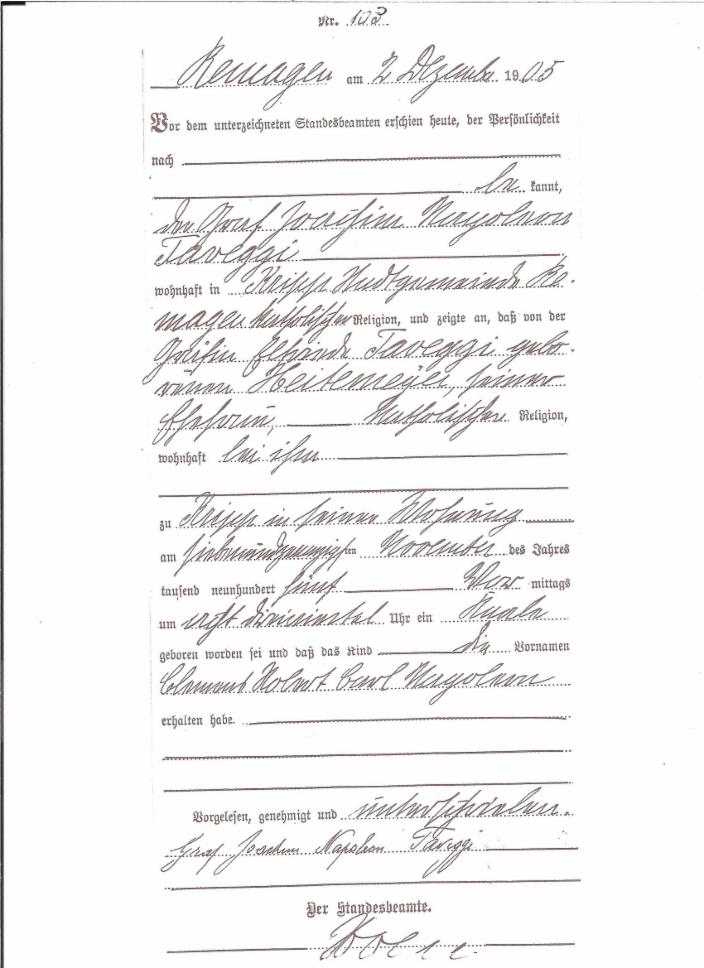 Nr. 103
Remagen am 2 Dezember 1905
Vor dem unterzeichneten Standesbeamten erschien heute, der Persönlichkeit
nach
be kannt,
der Graf Joachim Napoleon
Taveggi
wohnhaft in Kripp Stadtgemeinde Re-
magen katholischer Religion, und zeigte an, daß von der
Gräfin Taveggi gebo-
renen Heitemeyer, seiner
Ehefrau, katholischer Religion,
wohnhaft bei ihm
zu Kripp in seiner Wohnung
am siebenundzwanzigsten November des Jahres
tausend neunhundert fünf Vor mittags
um acht dreiviertel Uhr ein Knabe
geboren worden sei und daß das Kind die Vornamen
Clemens Robert Carl Napoleon
erhalten habe.
Vorgelesen, genehmigt und unterschrieben.
Graf Joachim Napoleon Taveggi
Der Standesbeamte.